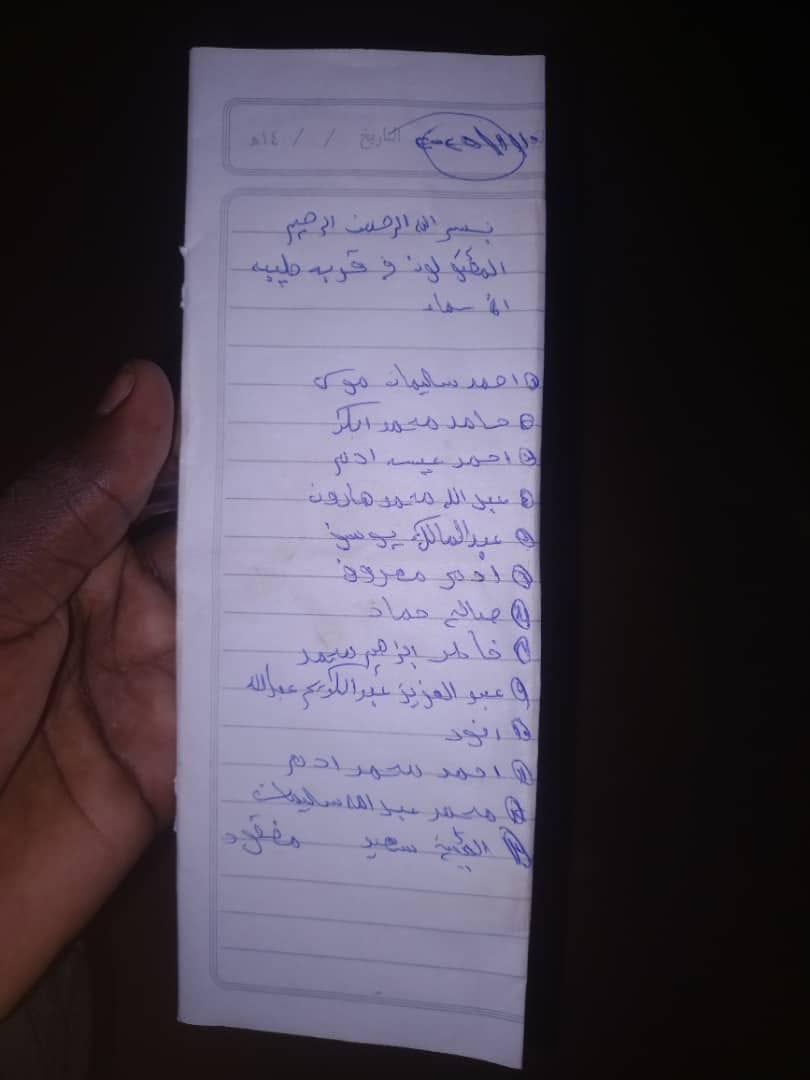 التاريخ / / ١٤هـ
بسم الله الرحمن الرحيم
المقتولون في قريه طيبه
الأسماء
① احمد سليمان موسى
② حامد محمد ابكر
③ احمد عيسه ادم
④ عبدالله محمد هارون
⑤ عبدالمالك يوسف
⑥ ادم معروف
⑦ صالح حماد
⑧ خاطر ابراهيم محمد
⑨ عبد العزيز عبدالكريم عبدالله
⑩ انور
⑪ احمد محمد ادم
⑫ محمد عبدالله سليمان
⑬ سعيد مفقود